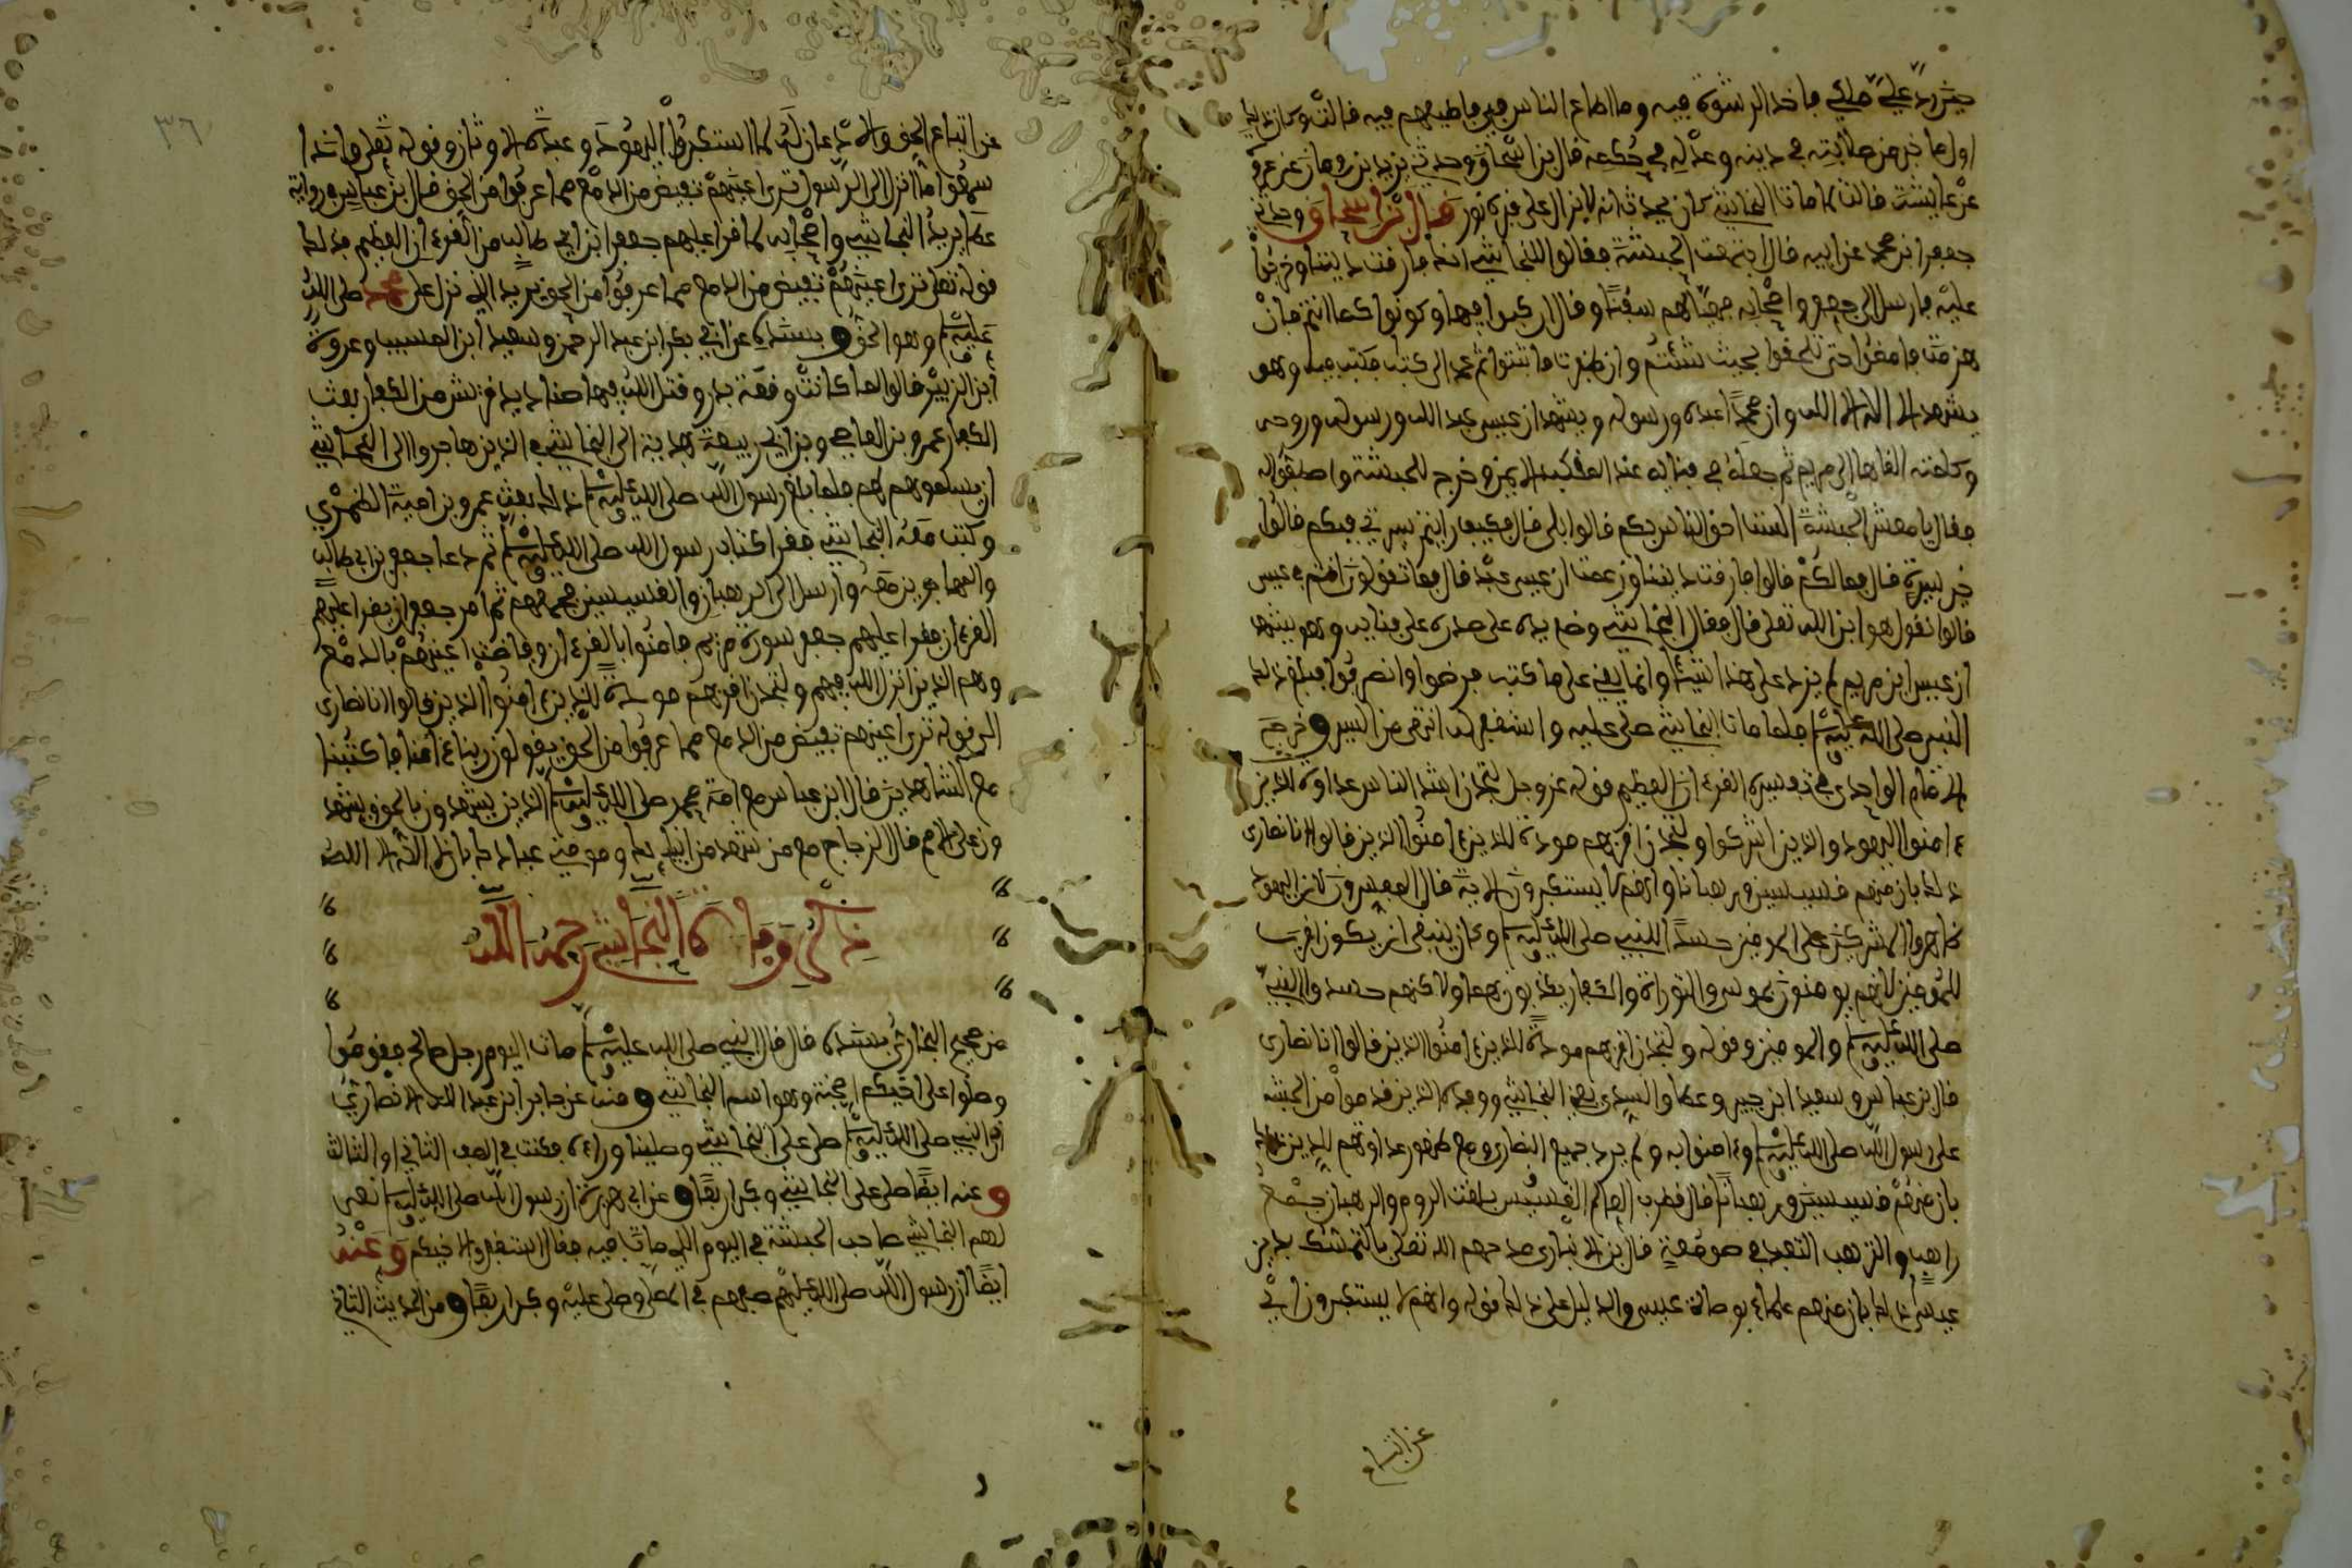 حين رد علي ملكي فآخذ الرشوة فيه وما اطاع الناس في فأطيعهم فيه قالت وكان ذلك
اول ما خبر من صلابته في دينه وعدله في حكمه قال بن اسحاق وحدثني يزيد بن رومان عن عروة
عن عايشة قالت لما مات النجاشي كان يتحدث انه لا يزال على قبره نور قال بن اسحاق وحدثني
جعفر ابن محمد عن ابيه قال اجتمعت الحبشة فقالوا للنجاشي انك فارقت ديننا وخرجوا
عليه فارسل الى جعفر واصحابه فهيأ لهم سفنا وقال اركبوا فيها وكونوا كما انتم فإن
هزمت فامضوا حتى تلحقوا بحيث شئتم وان ظفرت فاثبتوا ثم عمد الى كتاب فكتب فيه وهو
يشهد الا اله الا الله وان محمدا عبده ورسوله ويشهد ان عيسى عبد الله ورسوله وروحه
وكلمته القاها الى مريم ثم جعله في قبايه عند المنكب الايمن وخرج للحبشة واصطفوا له
فقال يا معشر الحبشة الست احق الناس بكم قالوا بلى قال فكيف رايتم سيرتي فيكم قالوا
خير سيرة قال فما لكم قالوا فارقت ديننا وزعمت ان عيسى عبد قال فما تقولون انتم في عيسى
قالوا نقول هو ابن الله تعلى قال فقال النجاشي وضع يده على صدره على قبايه وهو يشهد
ان عيسى ابن مريم لم يزد على هذا شيئا وانما يعني على ما كتب فرضوا وانصرفوا فبلغ ذلك
النبي صلى الله عليه وسلم فلما مات النجاشي صلى عليه واستغفر له انتهى من السير وخرج
الامام الواحدي في تفسيره القرءان العظيم قوله عز وجل لتجدن اشد الناس عداوة للذين
ءامنوا اليهود والذين اشركوا ولتجدن اقربهم مودة للذين ءامنوا الذين قالوا انا نصارى
ذلك بان منهم قسيسين ورهبانا وانهم لا يستكبرون الاية قال المفسرون لان اليهود
ظاهروا المشركين على المومنين حسدا للنبي صلى الله عليه وسلم وكان ينبغي ان يكون اقرب
للمومنين لانهم يومنون بموسى والتوراة والكفار يكذبون بهما ولاكنهم حسدوا النبي
صلى الله عليه وسلم والمومنين وقوله ولتجدن اقربهم مودة للذين ءامنوا الذين قالوا انا نصارى
قال بن عباس وسعيد ابن جبير وعطا والسدي يعني النجاشي ووفده الذين قدموا من الحبشة
على رسول الله صلى الله عليه وسلم وءامنوا به ولم يرد جميع النصارى مع ظهور عداوتهم للدين ذلك
بان منهم قسيسين ورهبانا قال قطرب العالم القسيس بلغت الروم والرهبان جمع
راهب والترهب التعبد في صومعة قال بن الانباري مدحهم الله تعلى بالتمسك بدين
عيسى ذلك بان منهم علماء بوصاة عيسى والدليل على ذلك قوله وانهم لا يستكبرون اي
عن اتباع
عن اتباع الحق والاذعان له كما استكبروا اليهود وعبدة الاوثان وقوله تعلى واذا
سمعوا ما انزل الى الرسول ترى اعينهم تفيض من الدمع مما عرفوا من الحق قال بن عباس في رواية
عطا يريد النجاشي واصحابه لما قرا عليهم جعفر ابن ابي طالب من القرءان العظيم فذلك
قوله تعلى ترى اعينهم تفيض من الدمع مما عرفوا من الحق يريد الذي نزل على محمد صلى الله
عليه وسلم وهو الحق وبسنده عن ابي بكر ابن عبد الرحمن وسعيد ابن المسيب وعروة
ابن الزبير قالوا لما كانت وقعة بدر وقتل الله فيها صناديد قريش من الكفار بعث
الكفار عمرو بن العاصي وبن ابي ربيعة بهدية الى النجاشي في الذين هاجروا الى النجاشي
ان يسلموهم لهم فلما بلغ رسول الله صلى الله عليه وسلم ذلك بعث عمرو بن امية الضمري
وكتب معه النجاشي فقرا كتاب رسول الله صلى الله عليه وسلم ثم دعا جعفر بن ابي طالب
والمهاجرين معه وارسل الى الرهبان والقسيسين فجمعهم ثم امر جعفر ان يقرا عليهم
القرءان فقرا عليهم جعفر سورة مريم فامنوا بالقرءان وفاضت اعينهم بالدمع
وهم الذين انزل الله فيهم ولتجدن اقربهم مودة للذين ءامنوا الذين قالوا انا نصارى
الى قوله ترى اعينهم تفيض من الدمع مما عرفوا من الحق يقولون ربنا ءامنا فاكتبنا
مع الشاهدين قال ابن عباس مع امة محمد صلى الله عليه وسلم الذين يشهدون بالحق ويشهد
ون على الامم قال الزجاج مع من شهد من انبيايك ومومني عبادك بان لا اله الا الله
ذكر وفاة النجاشي رحمه الله
من صحيح البخاري بسنده قال قال النبي صلى الله عليه وسلم مات اليوم رجل صالح فقوموا
وصلوا على اخيكم اصحمة وهو اسم النجاشي ومنه عن جابر ابن عبد الله الانصاري
ان النبي صلى الله عليه وسلم صلى على النجاشي وصلينا وراءه فكنت في الصف الثاني او الثالث
وعنه ايضا صلى على النجاشي وكبر اربعا وعن ابي هريرة ان رسول الله صلى الله عليه وسلم نعى
لهم النجاشي صاحب الحبشة في اليوم الذي مات فيه فقال استغفروا لاخيكم وعنه
ايضا ان رسول الله صلى الله عليه وسلم صفهم في المصلى وصلى عليه وكبر اربعا ومن الحديث الثاني
٣٦